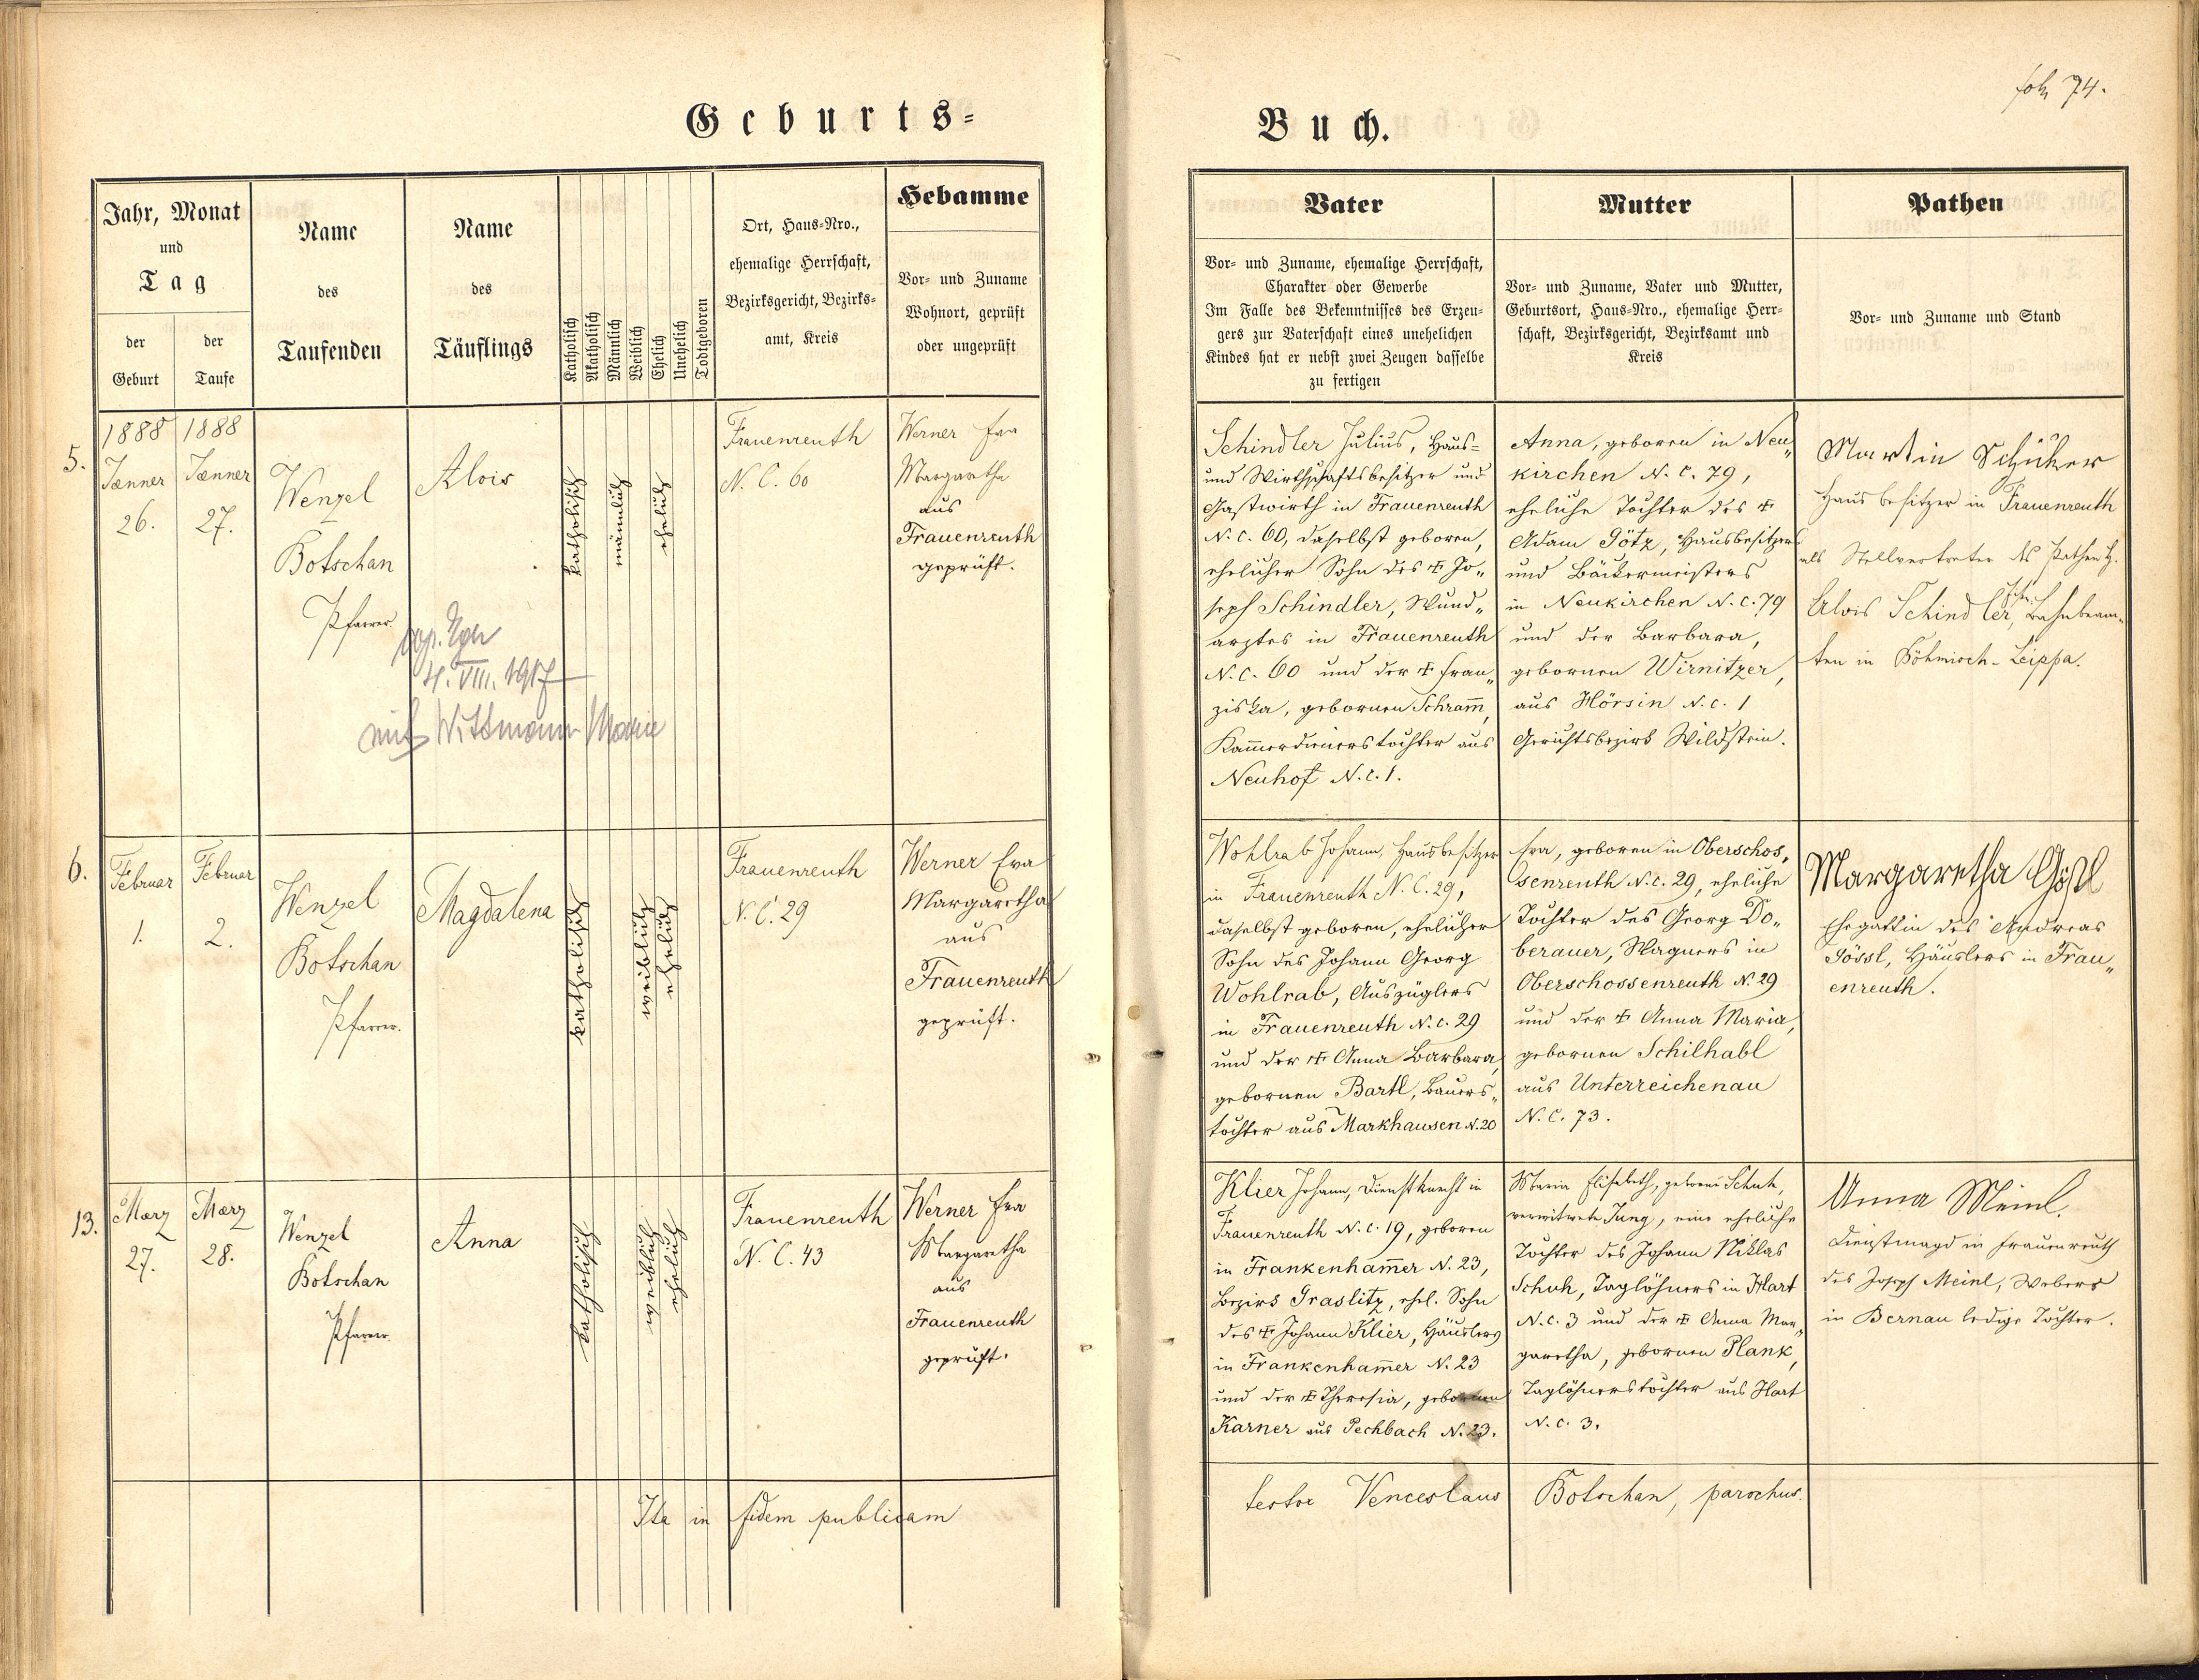 Geburts=
Buch.
fol. 74.
Jahr, Monat
und
Tag
der
Geburt
der
Taufe
Name
des
Taufenden
Name
des
Täuflings
Katholisch
Akatholisch
Männlich
Weiblich
Ehelich
Unehelich
Todtgeboren
Ort, Haus-Nro.,
ehemalige Herrschaft,
Bezirksgericht, Bezirks=
amt, Kreis
Hebamme
Vor- und Zuname
Wohnort, geprüft
oder ungeprüft
Vater
Vor- und Zuname, ehemalige Herrschaft,
Charakter oder Gewerbe
Im Falle des Bekenntnisses des Erzeu=
gers zur Vaterschaft eines unehelichen
Kindes hat er nebst zwei Zeugen dasselbe
zu fertigen
Mutter
Vor- und Zuname, Vater und Mutter,
Geburtsort, Haus-Nro., ehemalige Herr=
schaft, Bezirksgericht, Bezirksamt und
Kreis
Pathen
Vor- und Zuname und Stand
5.
1888
Jænner
26.
1888
Jænner
27.
Wenzel
Botschan
Pfarrer
Alois
4. VIII. 1917
mit Wittmann Marie
katholisch
männlich
ehelich
Frauenreuth
N. C. 60
Werner Eva
Margaretha
aus
Frauenreuth
geprüft.
Schindler Julius, Haus=
und Wirthschaftsbesitzer und
Gastwirth in Frauenreuth
N. C. 60, daselbst geboren,
ehelicher Sohn des † Jo„
seph Schindler, Wund„
arztes in Frauenreuth
N. C. 60 und der † Fran„
ziska, gebornen Schram̄,
Kam̄erdienerstochter aus
Neuhof N. C. 1.
Anna, geboren in Neu„
kirchen N. C. 79,
eheliche Tochter des †
Adam Götz, Hausbesitzers
und Bäckermeisters
in Neukirchen N. C. 79
und der Barbara,
gebornen Wirnitzer,
aus Hörsin N. C. 1
Gerichtsbezirk Wildstein.
Martin
Hausbesitzer in Frauenreuth
als Stellvertreter des Pathen H.
Alois Schindler, Bahnbeam„
ten in Böhmisch-Leippa.
6.
Februar
1.
Februar
2.
Wenzel
Botschan
Pfarrer.
Magdalena
katholisch
weiblich
ehelich
Frauenreuth
N. C. 29
Werner Eva
Margaretha
aus
Frauenreuth
geprüft.
Wohlrab Johann, Hausbesitzer
in Frauenreuth N. C. 29,
daselbst geboren, ehelicher
Sohn des Johann Georg
Wohlrab, Auszüglers
in Frauenreuth N. C. 29
und der † Anna Barbara,
gebornen Bartl, Bauers„
tochter aus Markhausen N. 20
Eva, geboren in Oberschos„
senreuth N. C. 29, eheliche
Tochter des Georg Do„
berauer, Wagners in
Oberschossenreuth N. 29
und der † Anna Maria,
gebornen Schilhabl
aus Unterreichenau
N. C. 73.
Margaretha Gößl
Ehegattin des Andreas
Gössl, Häuslers in Frau„
enreuth.
13.
März
27.
März
28.
Wenzel
Botschan
Pfarrer.
Anna
katholisch
weiblich
ehelich
Frauenreuth
N. C. 43
Werner Eva
Margaretha
aus
Frauenreuth
geprüft.
Klier Johann, Dienstknecht in
Frauenreuth N. C. 19, geboren
in Frankenham̄er N. 23,
Bezirk Graslitz, ehel. Sohn
des † Johann Klier, Häuslers
in Frankenham̄er N. 23
und der † Theresia, gebornen
Karner aus Pechbach N. 23.
Maria Elisabeth, geborne Schuh,
verwitwete Jung, eine eheliche
Tochter des Johann Niklas
Schuh, Taglöhners in Hart
N. C. 3 und der † Anna Mar„
garetha, gebornen Plank,
Taglöhnerstochter aus Hart
N. C. 3.
Anna Meinl,
Dienstmagd in Frauenreuth
des Joseph Meinl, Webers
in Bernau ledige Tochter.
Ita in fidem publicam
testor Venceslaus Botschan, parochus.